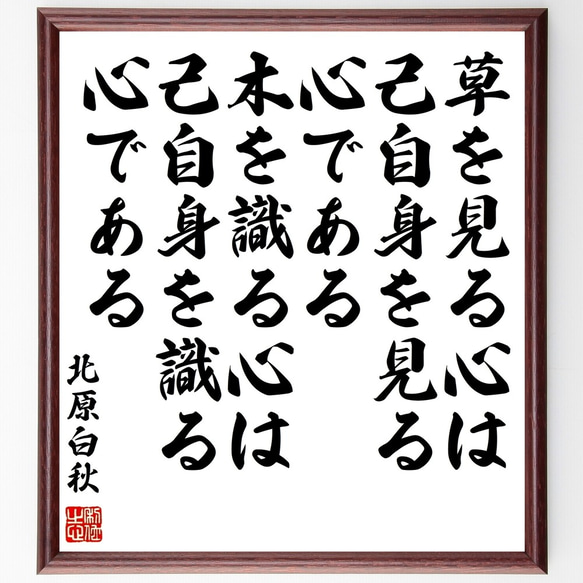 草を見る心は
己自身を見る
心である
木を識る心は
己自身を識る
心である
北原白秋